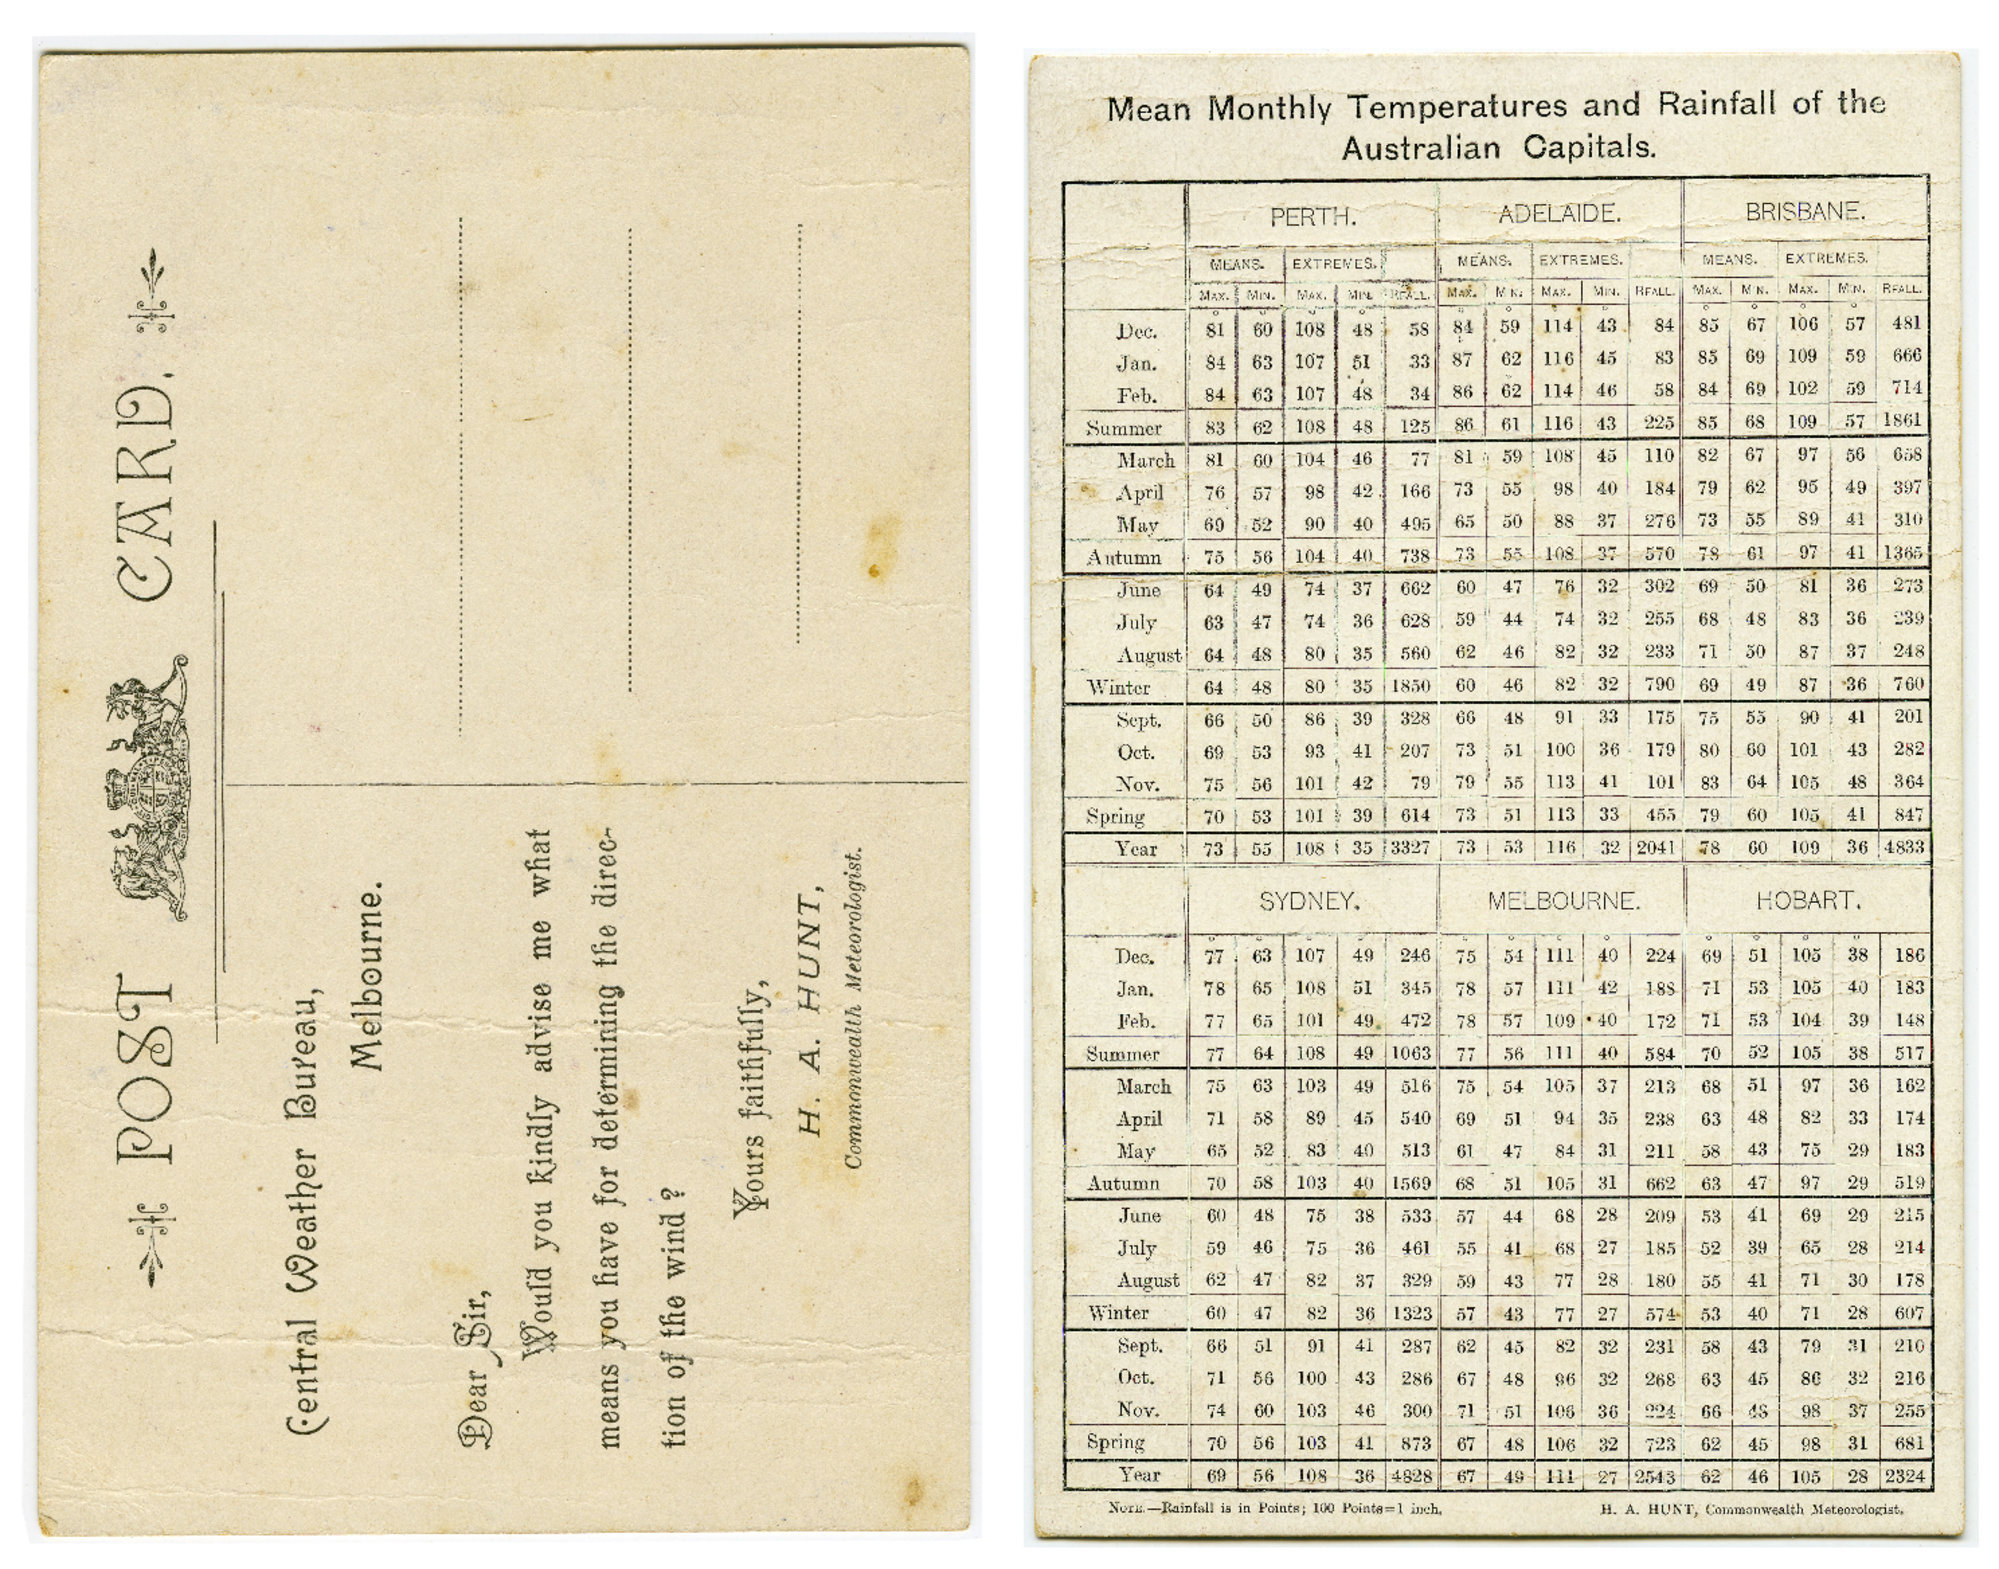 POST CARD.
Central Weather Bureau,
Melbourne.
Dear Sir,
Would you kindly advise me what
means you have for determining the direc-
tion of the wind?
Yours faithfully,
H. A. HUNT,
Commonwealth Meteorologist.
Mean Monthly Temperatures and Rainfall of the
Australian Capitals.
PERTH. ADELAIDE. BRISBANE.
MEANS. EXTREMES. MEANS. EXTREMES. MEANS. EXTREMES.
MAX. MIN. MAX. MIN. RFALL. MAX. MIN. MAX. MIN. RFALL. MAX. MIN. MAX. MIN. RFALL.
Dec. 81 60 108 48 58 84 59 114 43 84 85 67 106 57 481
Jan. 84 63 107 51 33 87 62 116 45 83 85 69 109 59 666
Feb. 84 63 107 48 34 86 62 114 46 58 84 69 102 59 714
Summer 83 62 108 48 125 86 61 116 43 225 85 68 109 57 1861
March 81 60 104 46 77 81 59 108 45 110 82 67 97 56 658
April 76 57 98 42 166 73 55 98 40 184 79 62 95 49 397
May 69 52 90 40 495 65 50 88 37 276 73 55 89 41 310
Autumn 75 56 104 40 738 73 55 108 37 570 78 61 97 41 1365
June 64 49 74 37 662 60 47 76 32 302 69 50 81 36 273
July 63 47 74 36 628 59 44 74 32 255 68 48 83 36 239
August 64 48 80 35 560 62 46 82 32 233 71 50 87 37 248
Winter 64 48 80 35 1850 60 46 82 32 790 69 49 87 36 760
Sept. 66 50 86 39 328 66 48 91 33 175 75 55 90 41 201
Oct. 69 53 93 41 207 73 51 100 36 179 80 60 101 43 282
Nov. 75 56 101 42 79 79 55 113 41 101 83 64 105 48 364
Spring 70 53 101 39 614 73 51 113 33 455 79 60 105 41 847
Year 73 55 108 35 3327 73 53 116 32 2041 78 60 109 36 4833
SYDNEY. MELBOURNE. HOBART.
Dec. 77 63 107 49 246 75 54 111 40 224 69 51 105 38 186
Jan. 78 65 108 51 345 78 57 111 42 188 71 53 105 40 183
Feb. 77 65 101 49 472 78 57 109 40 172 71 53 104 39 148
Summer 77 64 108 49 1063 77 56 111 40 584 70 52 105 38 517
March 75 63 103 49 516 75 54 105 37 213 68 51 97 36 162
April 71 58 89 45 540 69 51 94 35 238 63 48 82 33 174
May 65 52 83 40 513 61 47 84 31 211 58 43 75 29 183
Autumn 70 58 103 40 1569 68 51 105 31 662 63 47 97 29 519
June 60 48 75 38 533 57 44 68 28 209 53 41 69 29 215
July 59 46 75 36 461 55 41 68 27 185 52 39 65 28 214
August 62 47 82 37 329 59 43 77 28 180 55 41 71 30 178
Winter 60 47 82 36 1323 57 43 77 27 574 53 40 71 28 607
Sept. 66 51 91 41 287 62 45 82 32 231 58 43 79 31 210
Oct. 71 56 100 43 286 67 48 96 32 268 63 45 86 32 216
Nov. 74 60 103 46 300 71 51 106 36 224 66 48 98 37 255
Spring 70 56 103 41 873 67 48 106 32 723 62 45 98 31 681
Year 69 56 108 36 4828 67 49 111 27 2543 62 46 105 28 2324
NOTE.—Rainfall is in Points; 100 Points=1 inch. H. A. HUNT, Commonwealth Meteorologist.